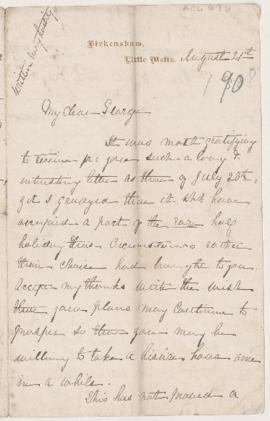 Birkenshaw,
Little Metis. August 21st
190
My dear George
It was most gratifying
to receive fr: you such a long &
interesting letter as that of July 20th,
yet I grudged that it shd have
occupied a part of the rare half
holiday than circumstances rather
than choice had brought to you.
Accept my thanks with the wish
that your plans may continue to
prosper so that you may be
willing to take a leisure hour once
in a while.
This has not proved a